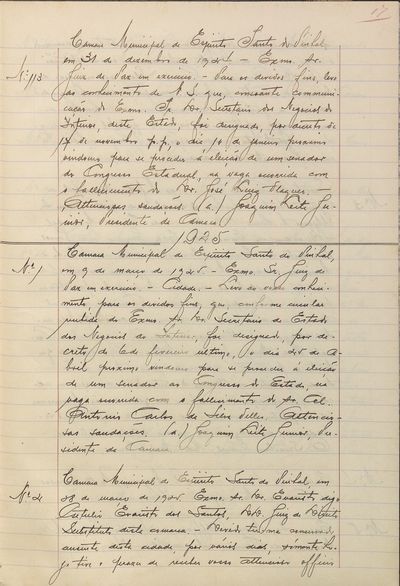 17
Camara Municipal de Espirito Santo do Pinhal,
Nº 113 em 31 de dezembro de 1924 - Exmo. Sr.
Juiz de Paz em exercicio. - Para os devidos fins, levo
ao conhecimento de V. S. que, consoante communi-
cação do Exmo. Sr. Dr. Secretario dos Negocios do
Interior, deste Estado, foi designado, por decreto de
17 de novembro p.p., o dia 14 de janeiro proximo
vindouro para se proceder á eleição de um senador
ao Congresso Estadual, na vaga occorrida com
o fallecimento do Dr. José Luiz
Attenciosas saudações. (a.) Joaquim Leite Ju-
nior, Presidente da Camara
1925
Nº 1 Camara Municipal de Espirito Santo do Pinhal,
em 9 de março de 1925. - Exmo. Sr. Juiz de
Paz em exercicio. - Cidade. - Levo ao vosso conheci-
mento, para os devidos fins, que, conforme circular
recebida do Exmo. Sr. Dr. Secretario do Estado
dos Negocios do Interior, foi designado, por de-
creto de 6 de fevereiro ultimo, o dia 25 de A-
bril proximo vindouro para se proceder á eleição
de um senador ao Congresso do Estado, na
vaga occorrida com o fallecimento do Sr. Cel.
Antonio Carlos da Silva Telles. Attencio-
sas saudações. (a) Joaquim Leite Junior, Pre-
sidente da Camara
Camara Municipal de Espirito Santo do Pinhal, em
Nº 2 28 de março de 1925. Exmo. Sr. Dr. Evaristo, digo
Evaristo dos Santos, DD. Juiz de Direito
Substituto desta comarca - Devido ter-me conservado
ausente desta cidade, por varios dias, sómente ho-
je tive o prazer de receber vosso attencioso officio